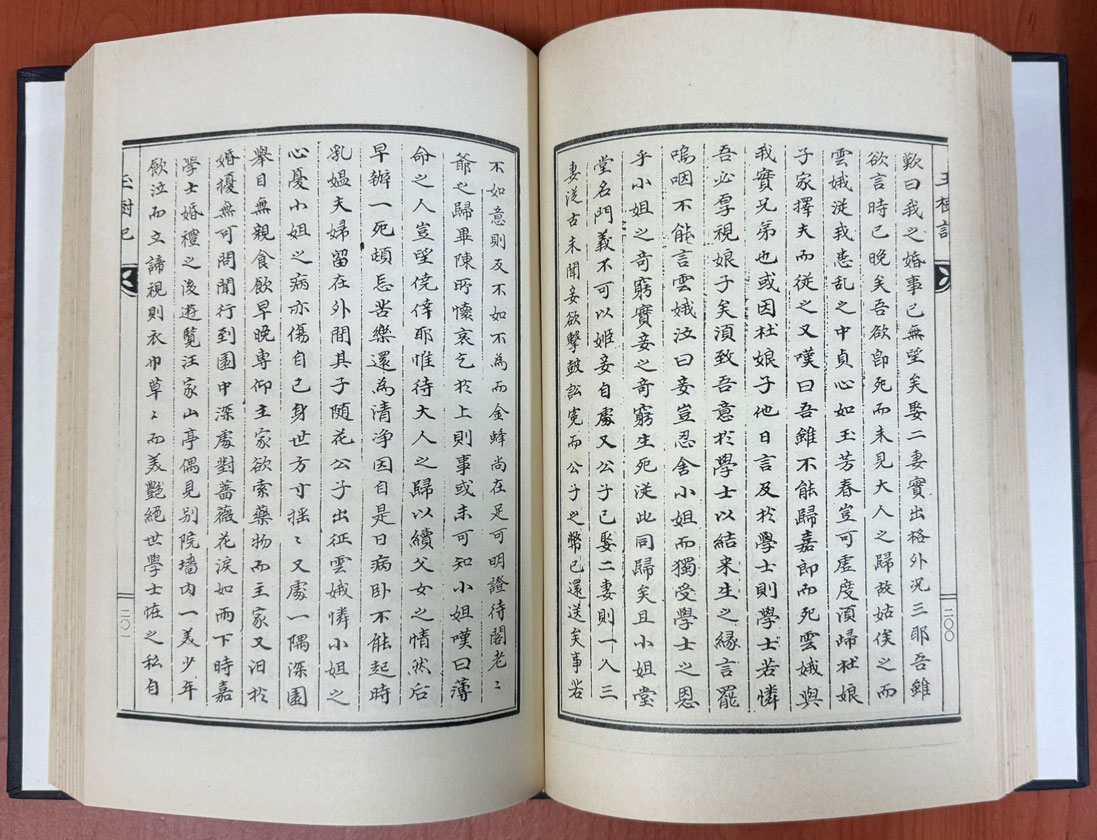 玉樹記
二〇〇
歎曰我之婚事已無望矣娶二妻實出格外況三耶吾雖
欲言時已晚矣吾欲卽死而未見大人之歸故姑俟之而
雲娥從我患乱之中貞心如玉芳春豈可虛度湏歸杜娘
子家擇夫而從之又嘆曰吾雖不能歸嘉郞而死雲娥與
我實兄弟也或因杜娘子他日言及於學士則學士若憐
吾必厚視娘子矣湏致吾意於學士以結来生之縁言罷
嗚咽不能言雲娥泣曰妾豈忍舍小姐而獨受學士之恩
乎小姐之竒窮實妾之竒窮生死從此同歸矣且小姐堂
堂名門義不可以姬妾自處又公子已娶二妻則一入三
妻從古未聞妾欲擊鼓訟寃而公子之幣已還送矣事若
不如意則反不如不為而金蜂尚在足可明證待閣老〻
爺之歸畢陳所懷哀乞於上則事或未可知小姐嘆曰薄
命之人豈望僥倖耶惟待大人之歸以續父女之情然后
早辦一死頓忘苦樂還為清净因自是日病卧不能起時
乳媼夫婦留在外間其子随花公子出征雲娥憐小姐之
心憂小姐之病亦傷自己身世方寸揺〻又處一隅深園
擧目無親食飲早晩專仰主家欲索藥物而主家又汨於
婚擾無可問聞行到園中深處對薔薇花淚如雨下時嘉
學士婚禮之後遊覽汪家山亭偶見別院墻内一美少年
飮泣而立諦視則衣巾草〻而美艶絕世學士恠之私自
玉樹記
二〇一